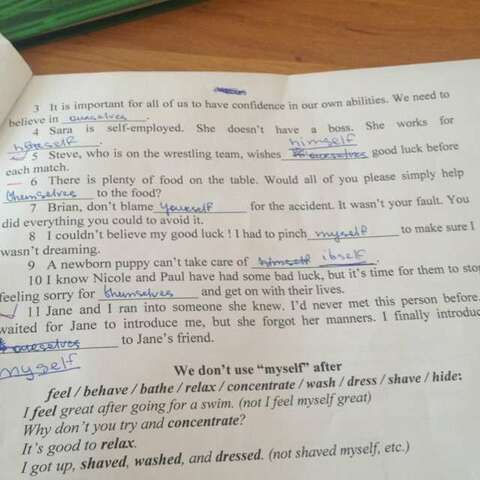 3 It is important for all of us to have confidence in our own abilities. We need to
believe in ourselves.
4 Sara is self-employed. She doesn't have a boss. She works for
herself. himself
5 Steve, who is on the wrestling team, wishes ourselves good luck before
each match.
6 There is plenty of food on the table. Would all of you please simply help
themselves to the food?
7 Brian, don't blame yourself for the accident. It wasn't your fault. You
did everything you could to avoid it.
8 I couldn't believe my good luck ! I had to pinch myself to make sure I
wasn't dreaming.
9 A newborn puppy can't take care of himself itself.
10 I know Nicole and Paul have had some bad luck, but it's time for them to stop
feeling sorry for themselves and get on with their lives.
11 Jane and I ran into someone she knew. I'd never met this person before.
waited for Jane to introduce me, but she forgot her manners. I finally introduc
ourselves to Jane's friend.
myself
We don't use "myself" after
feel / behave / bathe / relax / concentrate / wash / dress / shave / hide:
I feel great after going for a swim. (not I feel myself great)
Why don't you try and concentrate?
It's good to relax.
I got up, shaved, washed, and dressed. (not shaved myself, etc.)